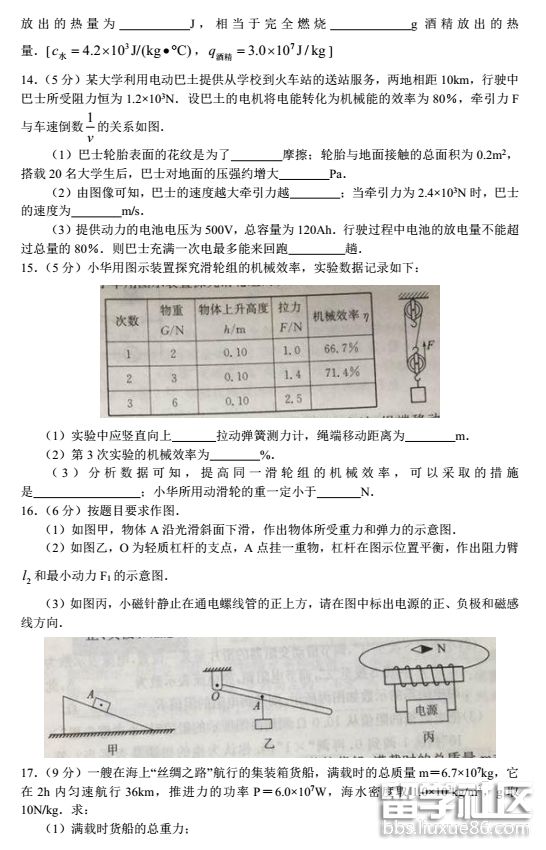 放出的热量为____________J，相当于完全燃烧____________g 酒精放出的热
量．[c水 = 4.2×10³J/(kg●℃)，q酒精 = 3.0×10⁷J/kg]
14.（5 分）某大学利用电动巴士提供从学校到火车站的送站服务，两地相距 10km，行驶中
巴士所受阻力恒为 1.2×10³N．设巴士的电机将电能转化为机械能的效率为 80%，牵引力 F
与车速倒数 1/v 的关系如图．
（1）巴士轮胎表面的花纹是为了________摩擦；轮胎与地面接触的总面积为 0.2m²，
搭载 20 名大学生后，巴士对地面的压强约增大________Pa．
（2）由图像可知，巴士的速度越大牵引力越________；当牵引力为 2.4×10³N 时，巴士
的速度为________m/s．
（3）提供动力的电池电压为 500V，总容量为 120Ah．行驶过程中电池的放电量不能超
过总量的 80%．则巴士充满一次电最多能来回跑________趟．
15.（5 分）小华用图示装置探究滑轮组的机械效率，实验数据记录如下：
次数 物重 G/N 物体上升高度 h/m 拉力 F/N 机械效率 η
1 2 0.10 1.0 66.7%
2 3 0.10 1.4 71.4%
3 6 0.10 2.5
F
（1）实验中应竖直向上______拉动弹簧测力计，绳端移动距离为________m．
（2）第 3 次实验的机械效率为________%．
（3）分析数据可知，提高同一滑轮组的机械效率，可以采取的措施
是________________；小华所用动滑轮的重一定小于______N．
16.（6 分）按题目要求作图．
（1）如图甲，物体 A 沿光滑斜面下滑，作出物体所受重力和弹力的示意图．
（2）如图乙，O 为轻质杠杆的支点，A 点挂一重物，杠杆在图示位置平衡，作出阻力臂
l₂ 和最小动力 F₁ 的示意图．
（3）如图丙，小磁针静止在通电螺线管的正上方，请在图中标出电源的正、负极和磁感
线方向．
A
甲
O
A
乙
N
电源
丙
17.（9 分）一艘在海上“丝绸之路”航行的集装箱货船，满载时的总质量 m＝6.7×10⁷kg，它
在 2h 内匀速航行 36km，推进力的功率 P＝6.0×10⁷W，海水密度取1.0×10³kg/m³，g取
10N/kg．求：
（1）满载时货船的总重力；
留学社区
bbs.liuxue86.com